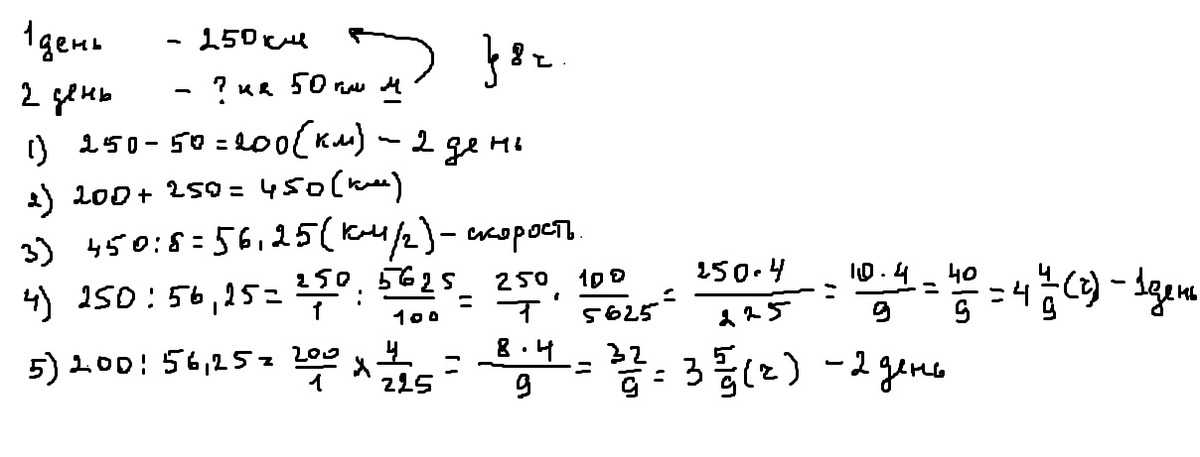 1 день - 250 км } 8 ч.
2 день - ? на 50 км м
1) 250 - 50 = 200 (км) - 2 день
2) 200 + 250 = 450 (км)
3) 450 : 8 = 56,25 (км/ч) - скорость.
4) 250 : 56,25 = 250/1 : 5625/100 = 250/1 · 100/5625 = 250·4/225 = 10·4/9 = 40/9 = 4 4/9 (ч) - 1 день
5) 200 : 56,25 = 200/1 × 4/225 = 8·4/9 = 32/9 = 3 5/9 (ч) - 2 день